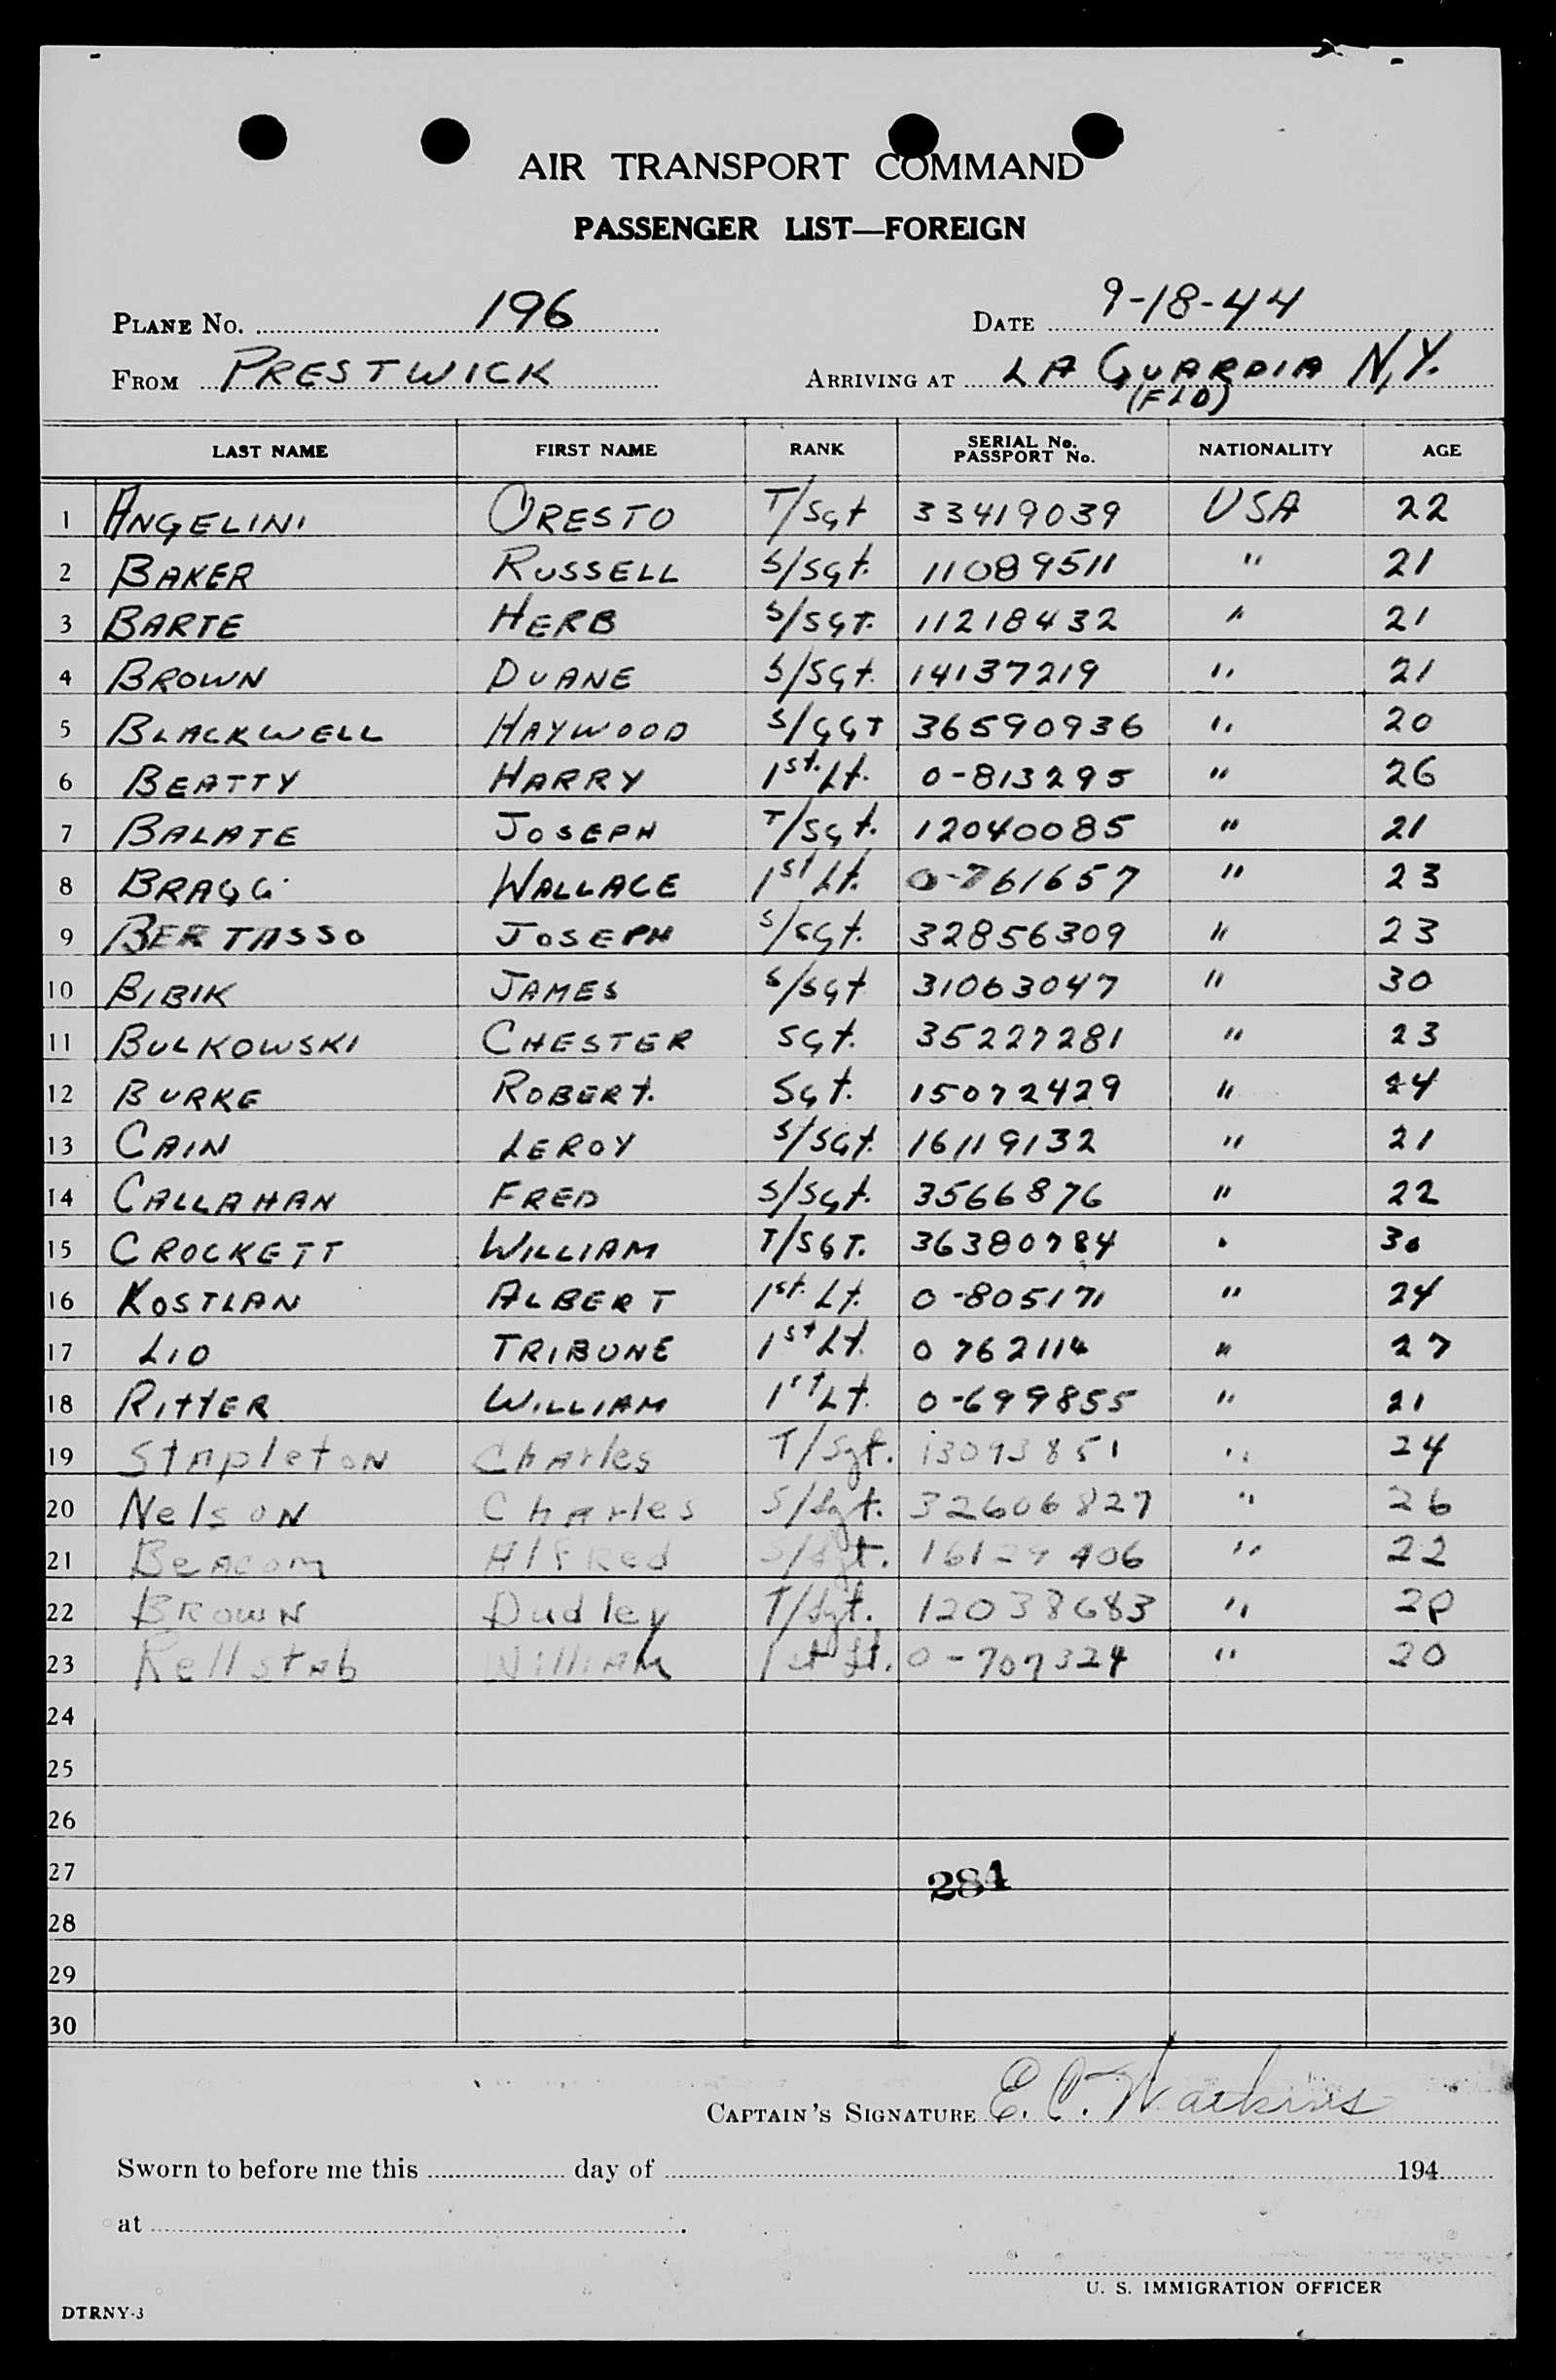 AIR TRANSPORT COMMAND
PASSENGER LIST—FOREIGN
PLANE No. 196 DATE 9-18-44
FROM PRESTWICK ARRIVING AT LA GUARDIA N.Y.
(FLD)
LAST NAME FIRST NAME RANK SERIAL No. PASSPORT No. NATIONALITY AGE
1 ANGELINI ORESTO T/Sgt 33419039 USA 22
2 BAKER RUSSELL S/Sgt. 11089511 " 21
3 BARTE HERB S/SGT. 11218432 " 21
4 BROWN DUANE S/SGt. 14137219 " 21
5 BLACKWELL HAYWOOD S/GGT 36590936 " 20
6 BEATTY HARRY 1st. Lt. 0-813295 " 26
7 BALATE JOSEPH T/Sgt. 12040085 " 21
8 BRAGG WALLACE 1st Lt. 0-761657 " 23
9 BERTASSO JOSEPH S/SGt. 32856309 " 23
10 BIBIK JAMES S/SGt 31063047 " 30
11 BULKOWSKI CHESTER SGt. 35227281 " 23
12 BURKE ROBERt. SGt. 15072429 " 24
13 CAIN LEROY S/SGt. 16119132 " 21
14 CALLAHAN FRED S/SGt. 3566876 " 22
15 CROCKETT WILLIAM T/SGT. 36380784 " 30
16 KOSTLAN ALBERT 1st. Lt. 0-805171 " 24
17 LIO TRIBUNE 1st Lt. 0 762114 " 27
18 RITTER WILLIAM 1st Lt. 0-699855 " 21
19 StApletoN ChArles T/Sgt. 13093851 " 24
20 NelsoN ChArles S/Sgt. 32606827 " 26
21 BeAcom AlfRed S/Sgt. 16129406 " 22
22 BROWN Dudley T/Sgt. 12038683 " 20
23 RellstAb WilliAm 1st Lt. 0-707324 " 20
24
25
26
27 284
28
29
30
CAPTAIN'S SIGNATURE E. C. Watkins
Sworn to before me this day of 194
at
U. S. IMMIGRATION OFFICER
DTRNY-3